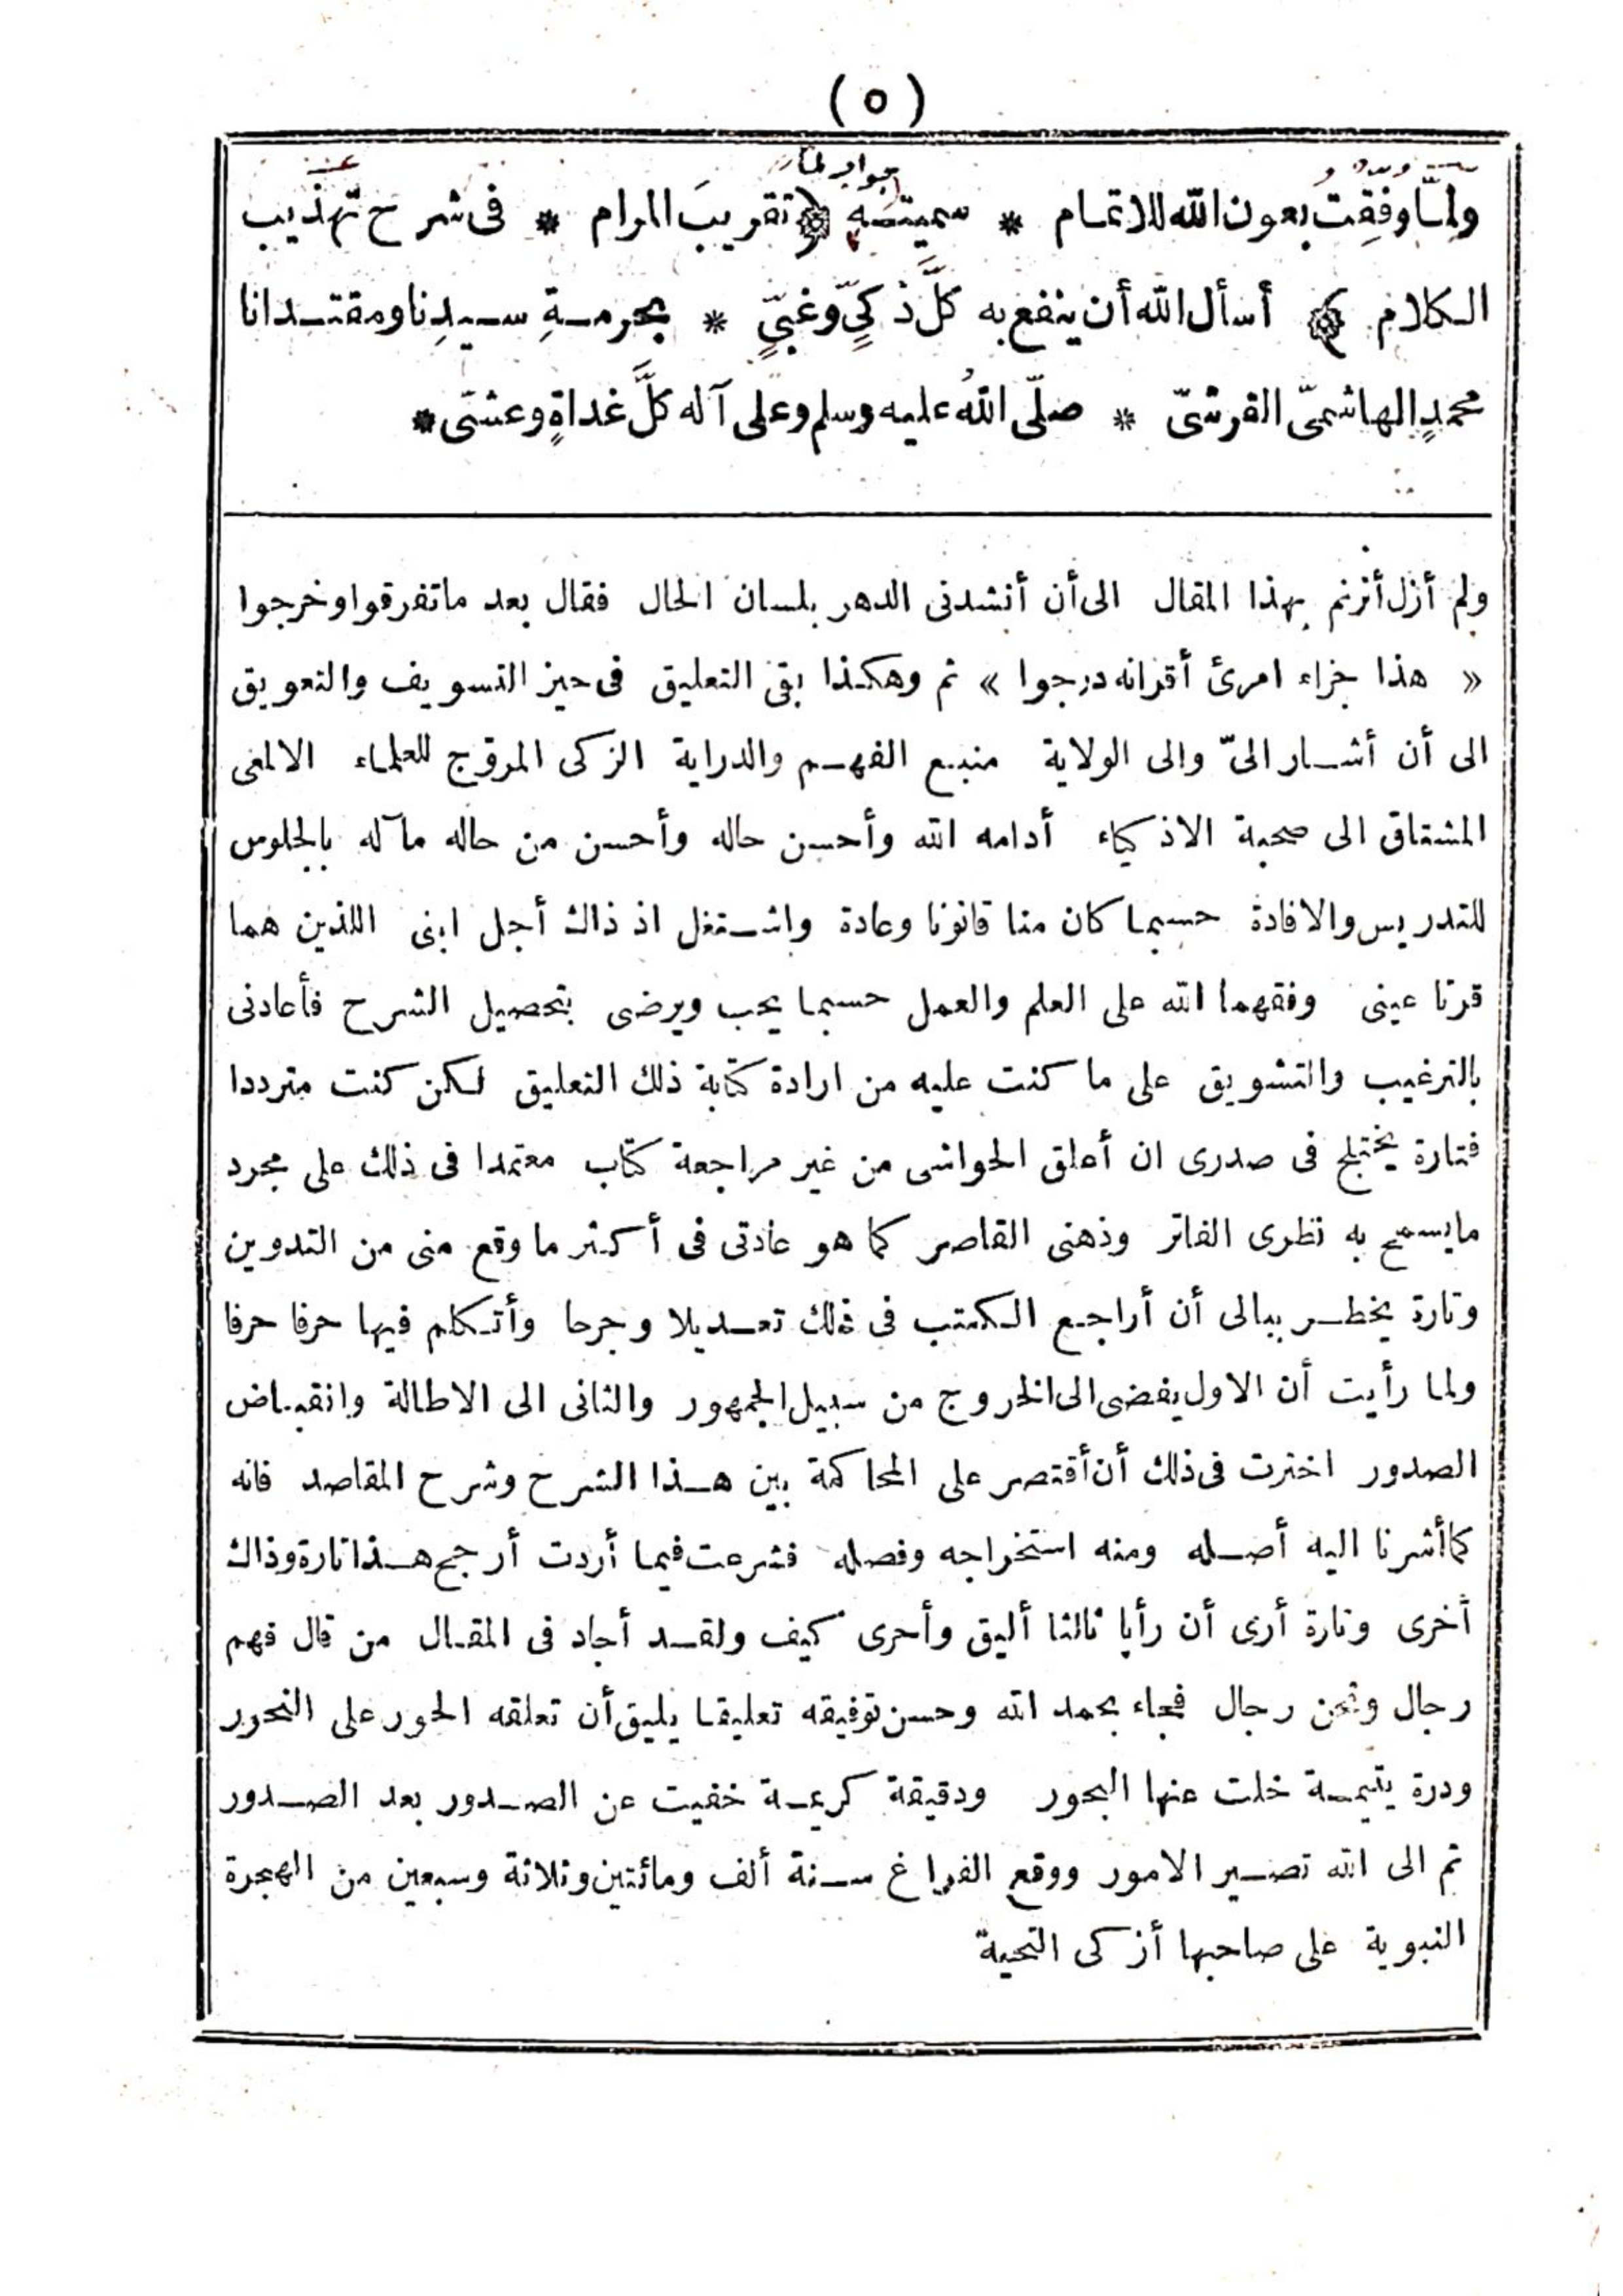 (٥)
جواب لما
ولمّا وفِّقت بعون الله للاتمام * سميته ﴿ تقريبَ المرام * فى شرح تهذيب
الكلام ﴾ أسأل الله أن ينفع به كلَّ ذكيٍّ وغبيٍّ * بحرمةِ سيدِنا ومقتدانا
محمدٍ الهاشمىّ القرشىّ * صلّى اللهُ عليه وسلم وعلى آله كلَّ غداةٍ وعشىّ *
ولم أزل أترنم بهذا المقال الى أن أنشدنى الدهر بلسان الحال فقال بعد ما تفرقوا وخرجوا
« هذا جزاء امرئ أقرانه درجوا » ثم وهكذا بقى التعليق فى حيز التسويف والتعويق
الى أن أشار الىّ والى الولاية منبع الفهم والدراية الزكى المروّج للعلماء الالمعى
المشتاق الى صحبة الاذكياء أدامه الله وأحسن حاله وأحسن من حاله مآله بالجلوس
للتدريس والافادة حسبما كان منا قانونا وعادة واشتغل اذ ذاك أجل ابنى اللذين هما
قرتا عينى وفقهما الله على العلم والعمل حسبما يحب ويرضى بتحصيل الشرح فأعادنى
بالترغيب والتشويق على ما كنت عليه من ارادة كتابة ذلك التعليق لكن كنت مترددا
فتارة يختلج فى صدرى ان أعلق الحواشى من غير مراجعة كتاب معتمدا فى ذلك على مجرد
مايسمح به نظرى الفاتر وذهنى القاصر كما هو عادتى فى أكثر ما وقع منى من التدوين
وتارة يخطر ببالى أن أراجع الكتب فى ذلك تعديلا وجرحا وأتكلم فيها حرفا حرفا
ولما رأيت أن الاول يفضى الى الخروج من سبيل الجمهور والثانى الى الاطالة وانقباض
الصدور اخترت فى ذلك أن أقتصر على المحاكمة بين هذا الشرح وشرح المقاصد فانه
كما أشرنا اليه أصله ومنه استخراجه وفصله فشرعت فيما أردت أرجح هذا تارة وذاك
أخرى وتارة أرى أن رأيا ثالثا أليق وأحرى كيف ولقد أجاد فى المقال من قال فهم
رجال ونحن رجال فجاء بحمد الله وحسن توفيقه تعليقا يليق أن تعلقه الحور على النحور
ودرة يتيمة خلت عنها البحور ودقيقة كريمة خفيت عن الصدور بعد الصدور
ثم الى الله تصير الامور ووقع الفراغ سنة ألف ومائتين وثلاثة وسبعين من الهجرة
النبوية على صاحبها أزكى التحية